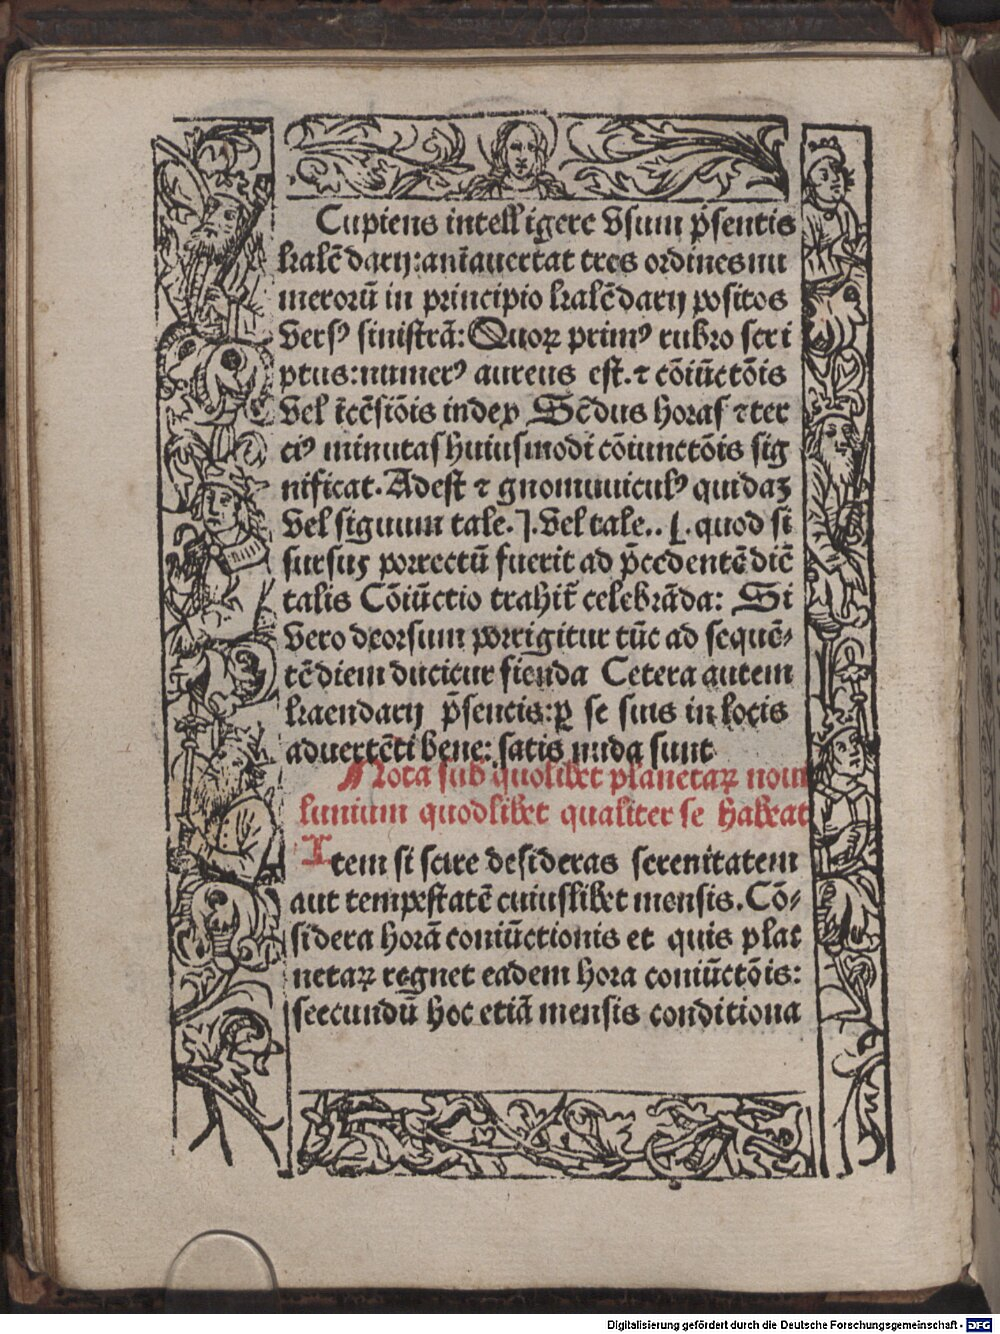 Cupiens intelligere vsum p̃sentis
kalẽdarij: aiãuertat tres ordines nu
merorũ in principio kalẽdarij positos
versꝰ sinistrã: Quoꝝ primꝰ rubro scri
ptus: numerꝰ aureus est. ⁊ cõiũctõis
vel ĩcẽsiõis index Scd̃us horas ⁊ ter
ciꝰ minutas huiusmodi cõiunctõis sig
nificat. Adest ⁊ gnomuuiculꝰ quidaʒ
vel siguum tale. ⌉. vel tale.. ⌊. quod si
sursuʒ porrectũ fuerit ad p̃cedentẽ diẽ
talis Cõiũctio trahit̃ celebrãda: Si
vero deorsum porrigitur tũc ad sequẽ⸗
tẽ diem ducitur fienda Cetera autem
kaendarij p̃sentis: ꝑ se suis in locis
aduertẽti bene: satis nuda sunt
Nota sub quolibet planetaꝝ noui
lunium quodlibet qualiter se habeat
Item si scire desideras serenitatem
aut tempestatẽ cuiuslibet mensis. Cõ⸗
sidera horã coniũctionis et quis plat
netaꝝ regnet eadem hora coniũctõis:
seecundũ hoc etiã mensis conditiona
Digitalisierung gefördert durch die Deutsche Forschungsgemeinschaft - DFG